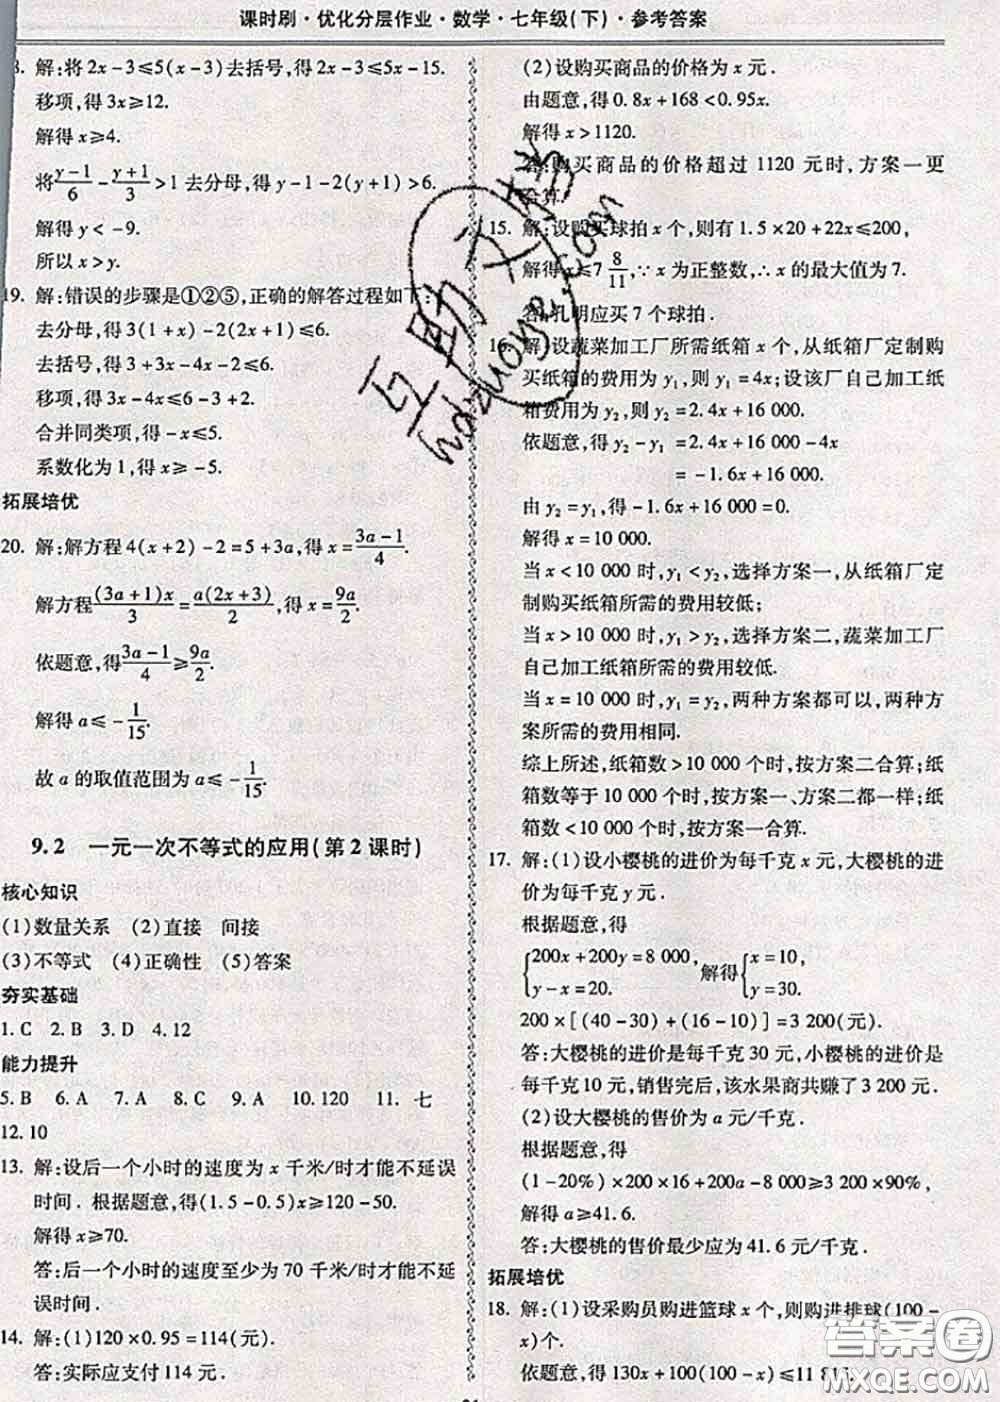 课时刷·优化分层作业·数学·七年级(下)·参考答案
8. 解:将2x-3≤5(x-3)去括号,得2x-3≤5x-15.
移项,得3x≥12.
解得x≥4.
将(y-1)/6-(y+1)/3>1去分母,得y-1-2(y+1)>6.
解得y<-9.
所以x>y.
19. 解:错误的步骤是①②⑤,正确的解答过程如下:
去分母,得3(1+x)-2(2x+1)≤6.
去括号,得3+3x-4x-2≤6.
移项,得3x-4x≤6-3+2.
合并同类项,得-x≤5.
系数化为1,得x≥-5.
拓展培优
20. 解:解方程4(x+2)-2=5+3a,得x=(3a-1)/4.
解方程(3a+1)x/3=a(2x+3)/2,得x=9a/2.
依题意,得(3a-1)/4≥9a/2.
解得a≤-1/15.
故a的取值范围为a≤-1/15.
9.2 一元一次不等式的应用(第2课时)
核心知识
(1)数量关系 (2)直接 间接
(3)不等式 (4)正确性 (5)答案
夯实基础
1. C 2. B 3. D 4. 12
能力提升
5. B 6. A 7. A 8. C 9. A 10. 120 11. 七
12. 10
13. 解:设后一个小时的速度为x千米/时才能不延误
时间. 根据题意,得(1.5-0.5)x≥120-50.
解得x≥70.
答:后一个小时的速度至少为70千米/时才能不延
误时间.
14. 解:(1)120×0.95=114(元).
答:实际应支付114元.
(2)设购买商品的价格为x元.
由题意,得0.8x+168<0.95x.
解得x>1120.
答:购买商品的价格超过1120元时,方案一更
合算.
15. 解:设购买球拍x个,则有1.5×20+22x≤200,
解得x≤7 8/11,∵x为正整数,∴x的最大值为7.
答:孔明应买7个球拍.
16. 解:设蔬菜加工厂所需纸箱x个,从纸箱厂定制购
买纸箱的费用为y₁,则y₁=4x;设该厂自己加工纸
箱费用为y₂,则y₂=2.4x+16 000.
依题意,得y₂-y₁=2.4x+16 000-4x
=-1.6x+16 000.
由y₂=y₁,得-1.6x+16 000=0.
解得x=10 000.
当x<10 000时,y₁<y₂,选择方案一,从纸箱厂定
制购买纸箱所需的费用较低;
当x>10 000时,y₁>y₂,选择方案二,蔬菜加工厂
自己加工纸箱所需的费用较低.
当x=10 000时,y₁=y₂,两种方案都可以,两种方
案所需的费用相同.
综上所述,纸箱数>10 000个时,按方案二合算;纸
箱数等于10 000个时,按方案一、方案二都一样;纸
箱数<10 000个时,按方案一合算.
17. 解:(1)设小樱桃的进价为每千克x元,大樱桃的进
价为每千克y元.
根据题意,得
{200x+200y=8 000, 解得{x=10,
y-x=20. y=30.
200×[(40-30)+(16-10)]=3 200(元).
答:大樱桃的进价是每千克30元,小樱桃的进价是
每千克10元,销售完后,该水果商共赚了3 200元.
(2)设大樱桃的售价为a元/千克.
根据题意,得
(1-20%)×200×16+200a-8 000≥3 200×90%,
解得a≥41.6.
答:大樱桃的售价最少应为41.6元/千克.
拓展培优
18. 解:(1)设采购员购进篮球x个,则购进排球(100-
x)个.
依题意,得130x+100(100-x)≤11 815.
互助文档
hdzuoye.com
答案圈
MXQE.COM